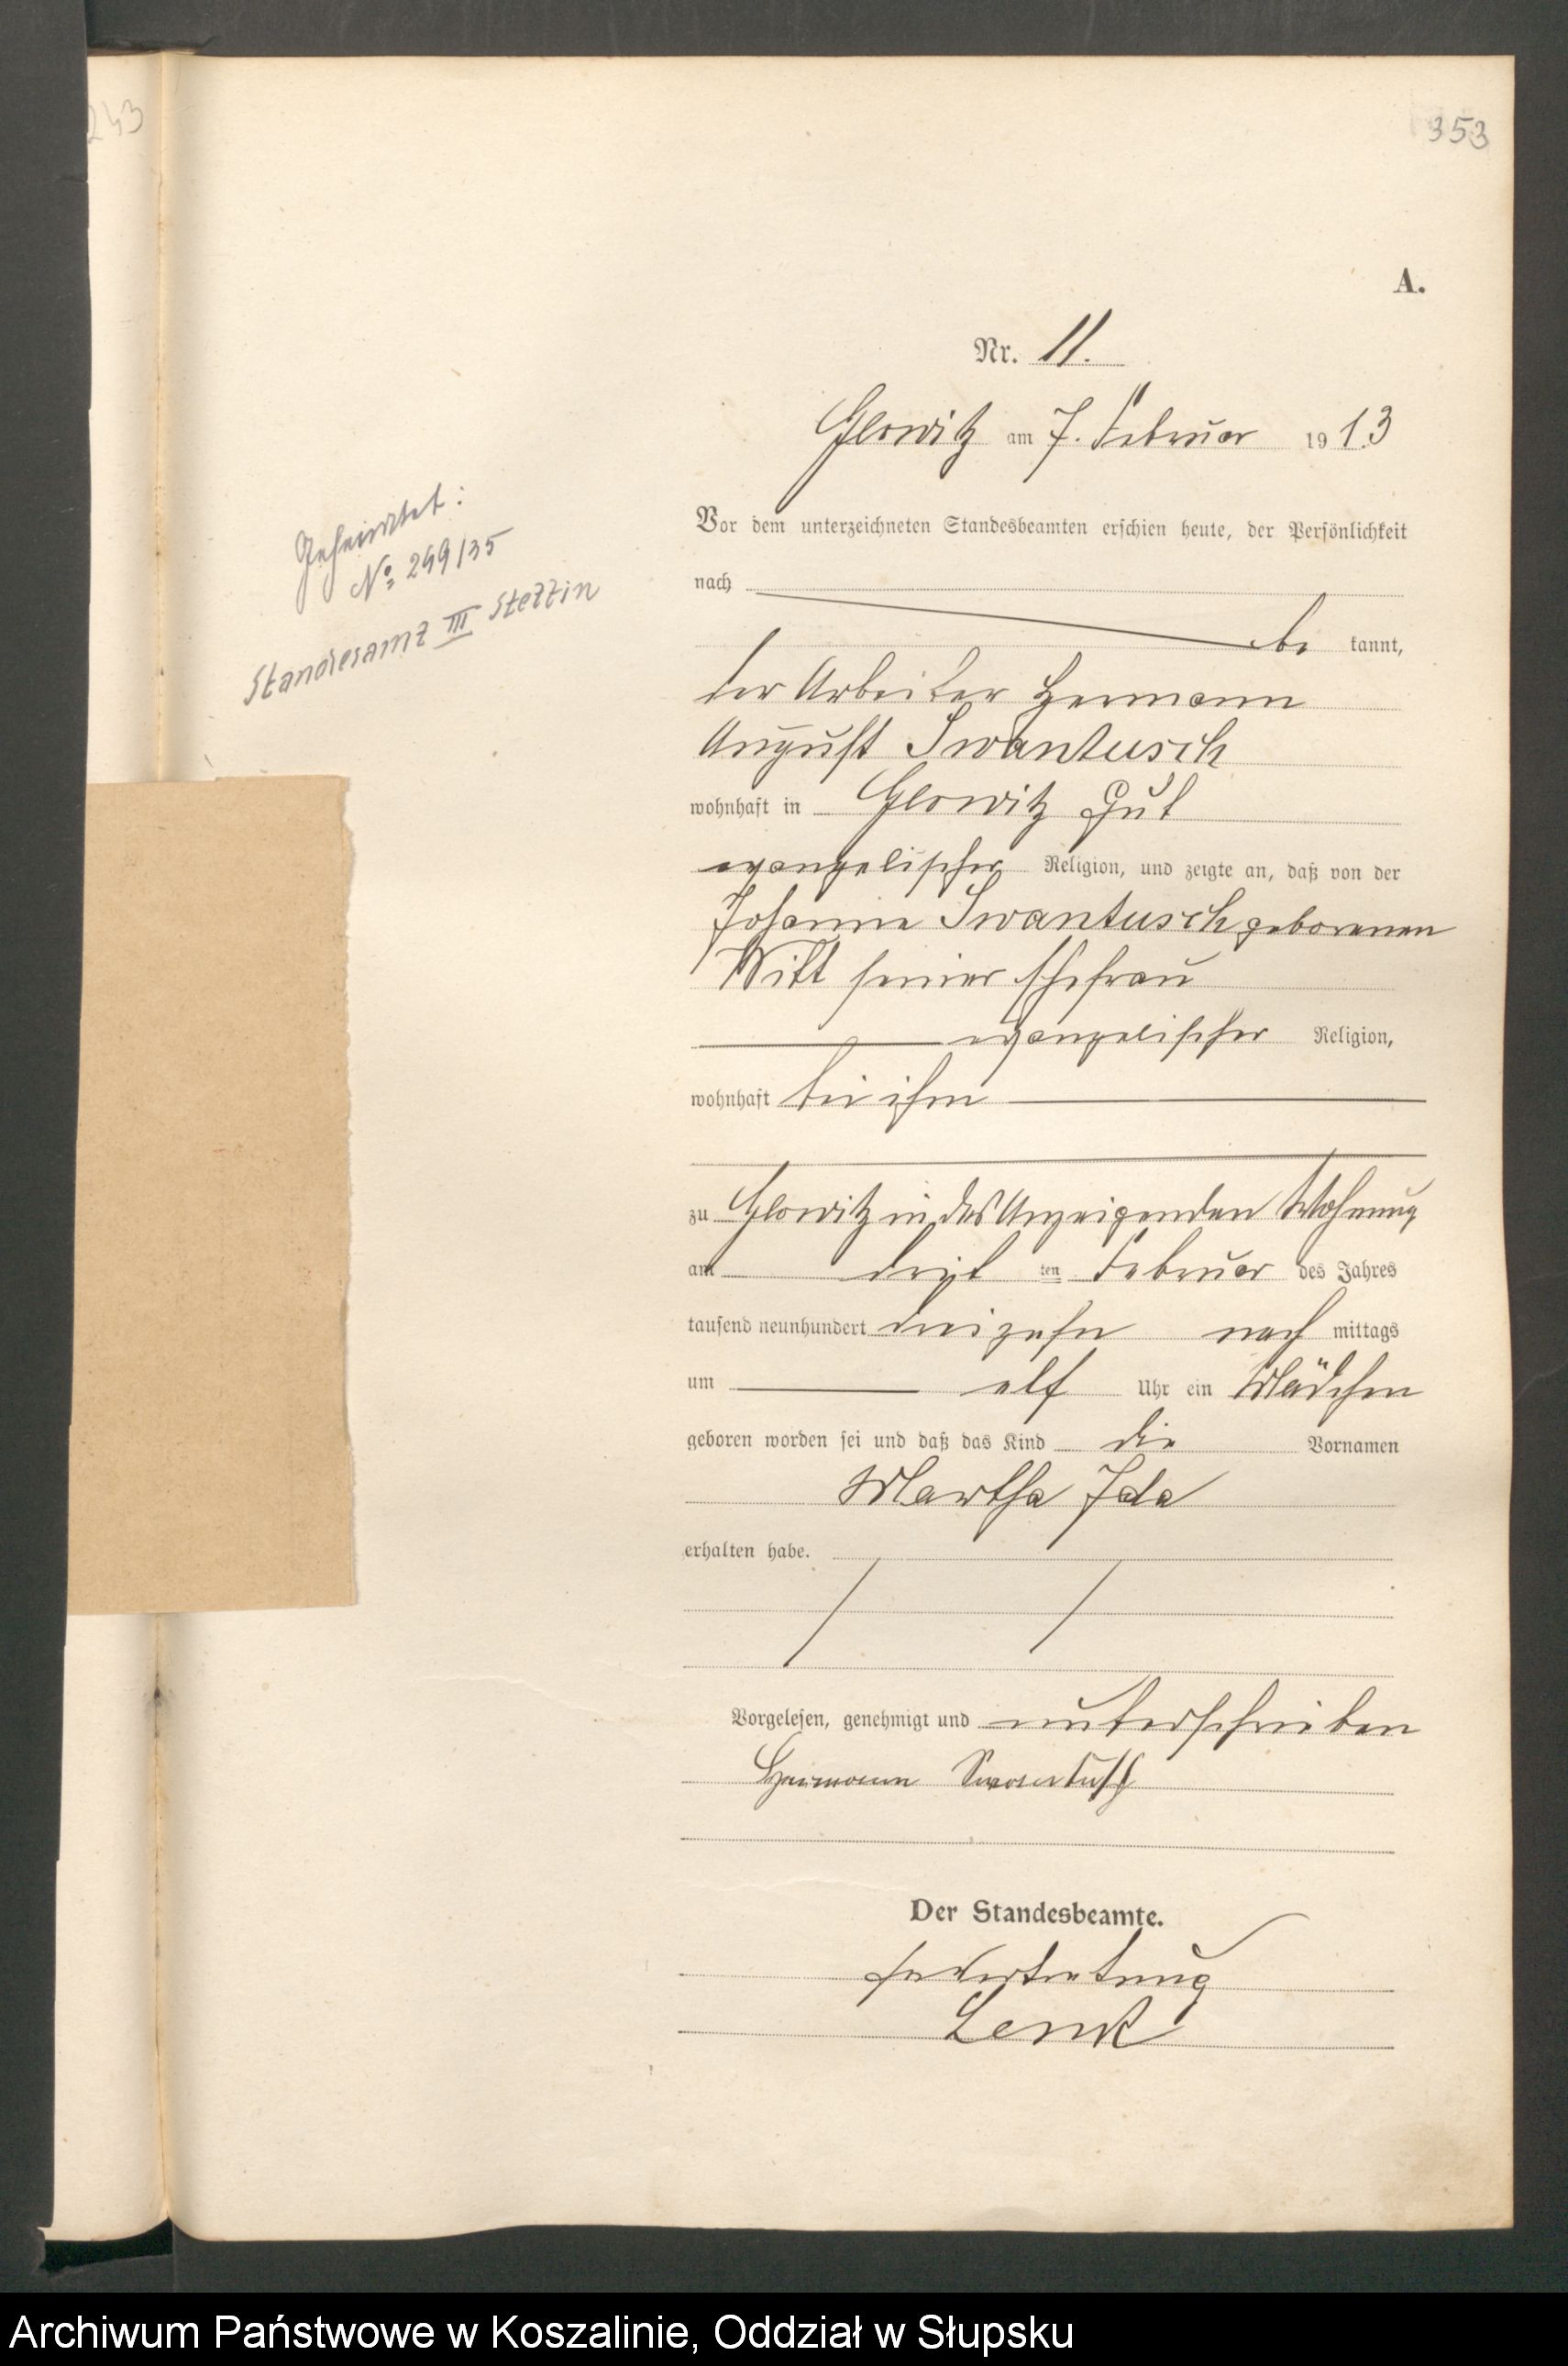 243
353
A.
Nr. 11.
Glowitz am 7. Februar 1913
Geheiratet:
No 249/35
Standesamt III Stettin
Vor dem unterzeichneten Standesbeamten erschien heute, der Persönlichkeit
nach
be kannt,
der Arbeiter Hermann
August Swantusch
wohnhaft in Glowitz Gut
evangelischer Religion, und zeigte an, daß von der
Johanne Swantusch geborenen
Witt seiner Ehefrau
evangelischer Religion,
wohnhaft bei ihm
zu Glowitz in des Anzeigenden Wohnung
am ten Februar des Jahres
tausend neunhundert dreizehn nach mittags
um elf Uhr ein Mädchen
geboren worden sei und daß das Kind die Vornamen
Martha Ida
erhalten habe.
Vorgelesen, genehmigt und unterschrieben
Hermann Swantusch
Der Standesbeamte.
In Vertretung
Lenk
Archiwum Państwowe w Koszalinie, Oddział w Słupsku